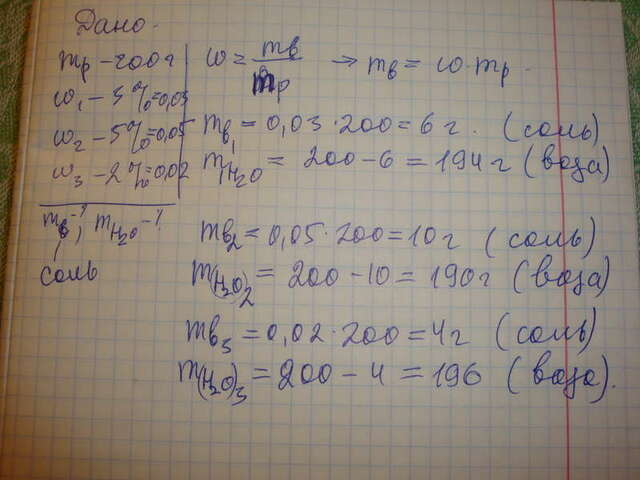 Дано.
mр - 200г
ω = mв/mр → mв = ω · mр.
ω₁ - 3% = 0,03
ω₂ - 5% = 0,05
ω₃ - 2% = 0,02
mв - ?, mH₂O - ?
соль
mв₁ = 0,03 · 200 = 6 г. (соль)
mH₂O = 200 - 6 = 194 г (вода)
mв₂ = 0,05 · 200 = 10 г (соль)
m(H₂O)₂ = 200 - 10 = 190 г (вода)
mв₃ = 0,02 · 200 = 4 г (соль)
m(H₂O)₃ = 200 - 4 = 196 (вода).